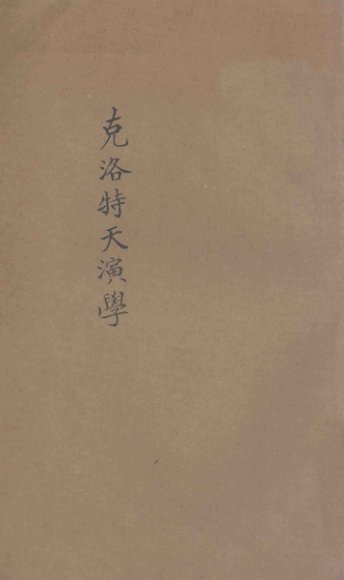 克洛特天演學